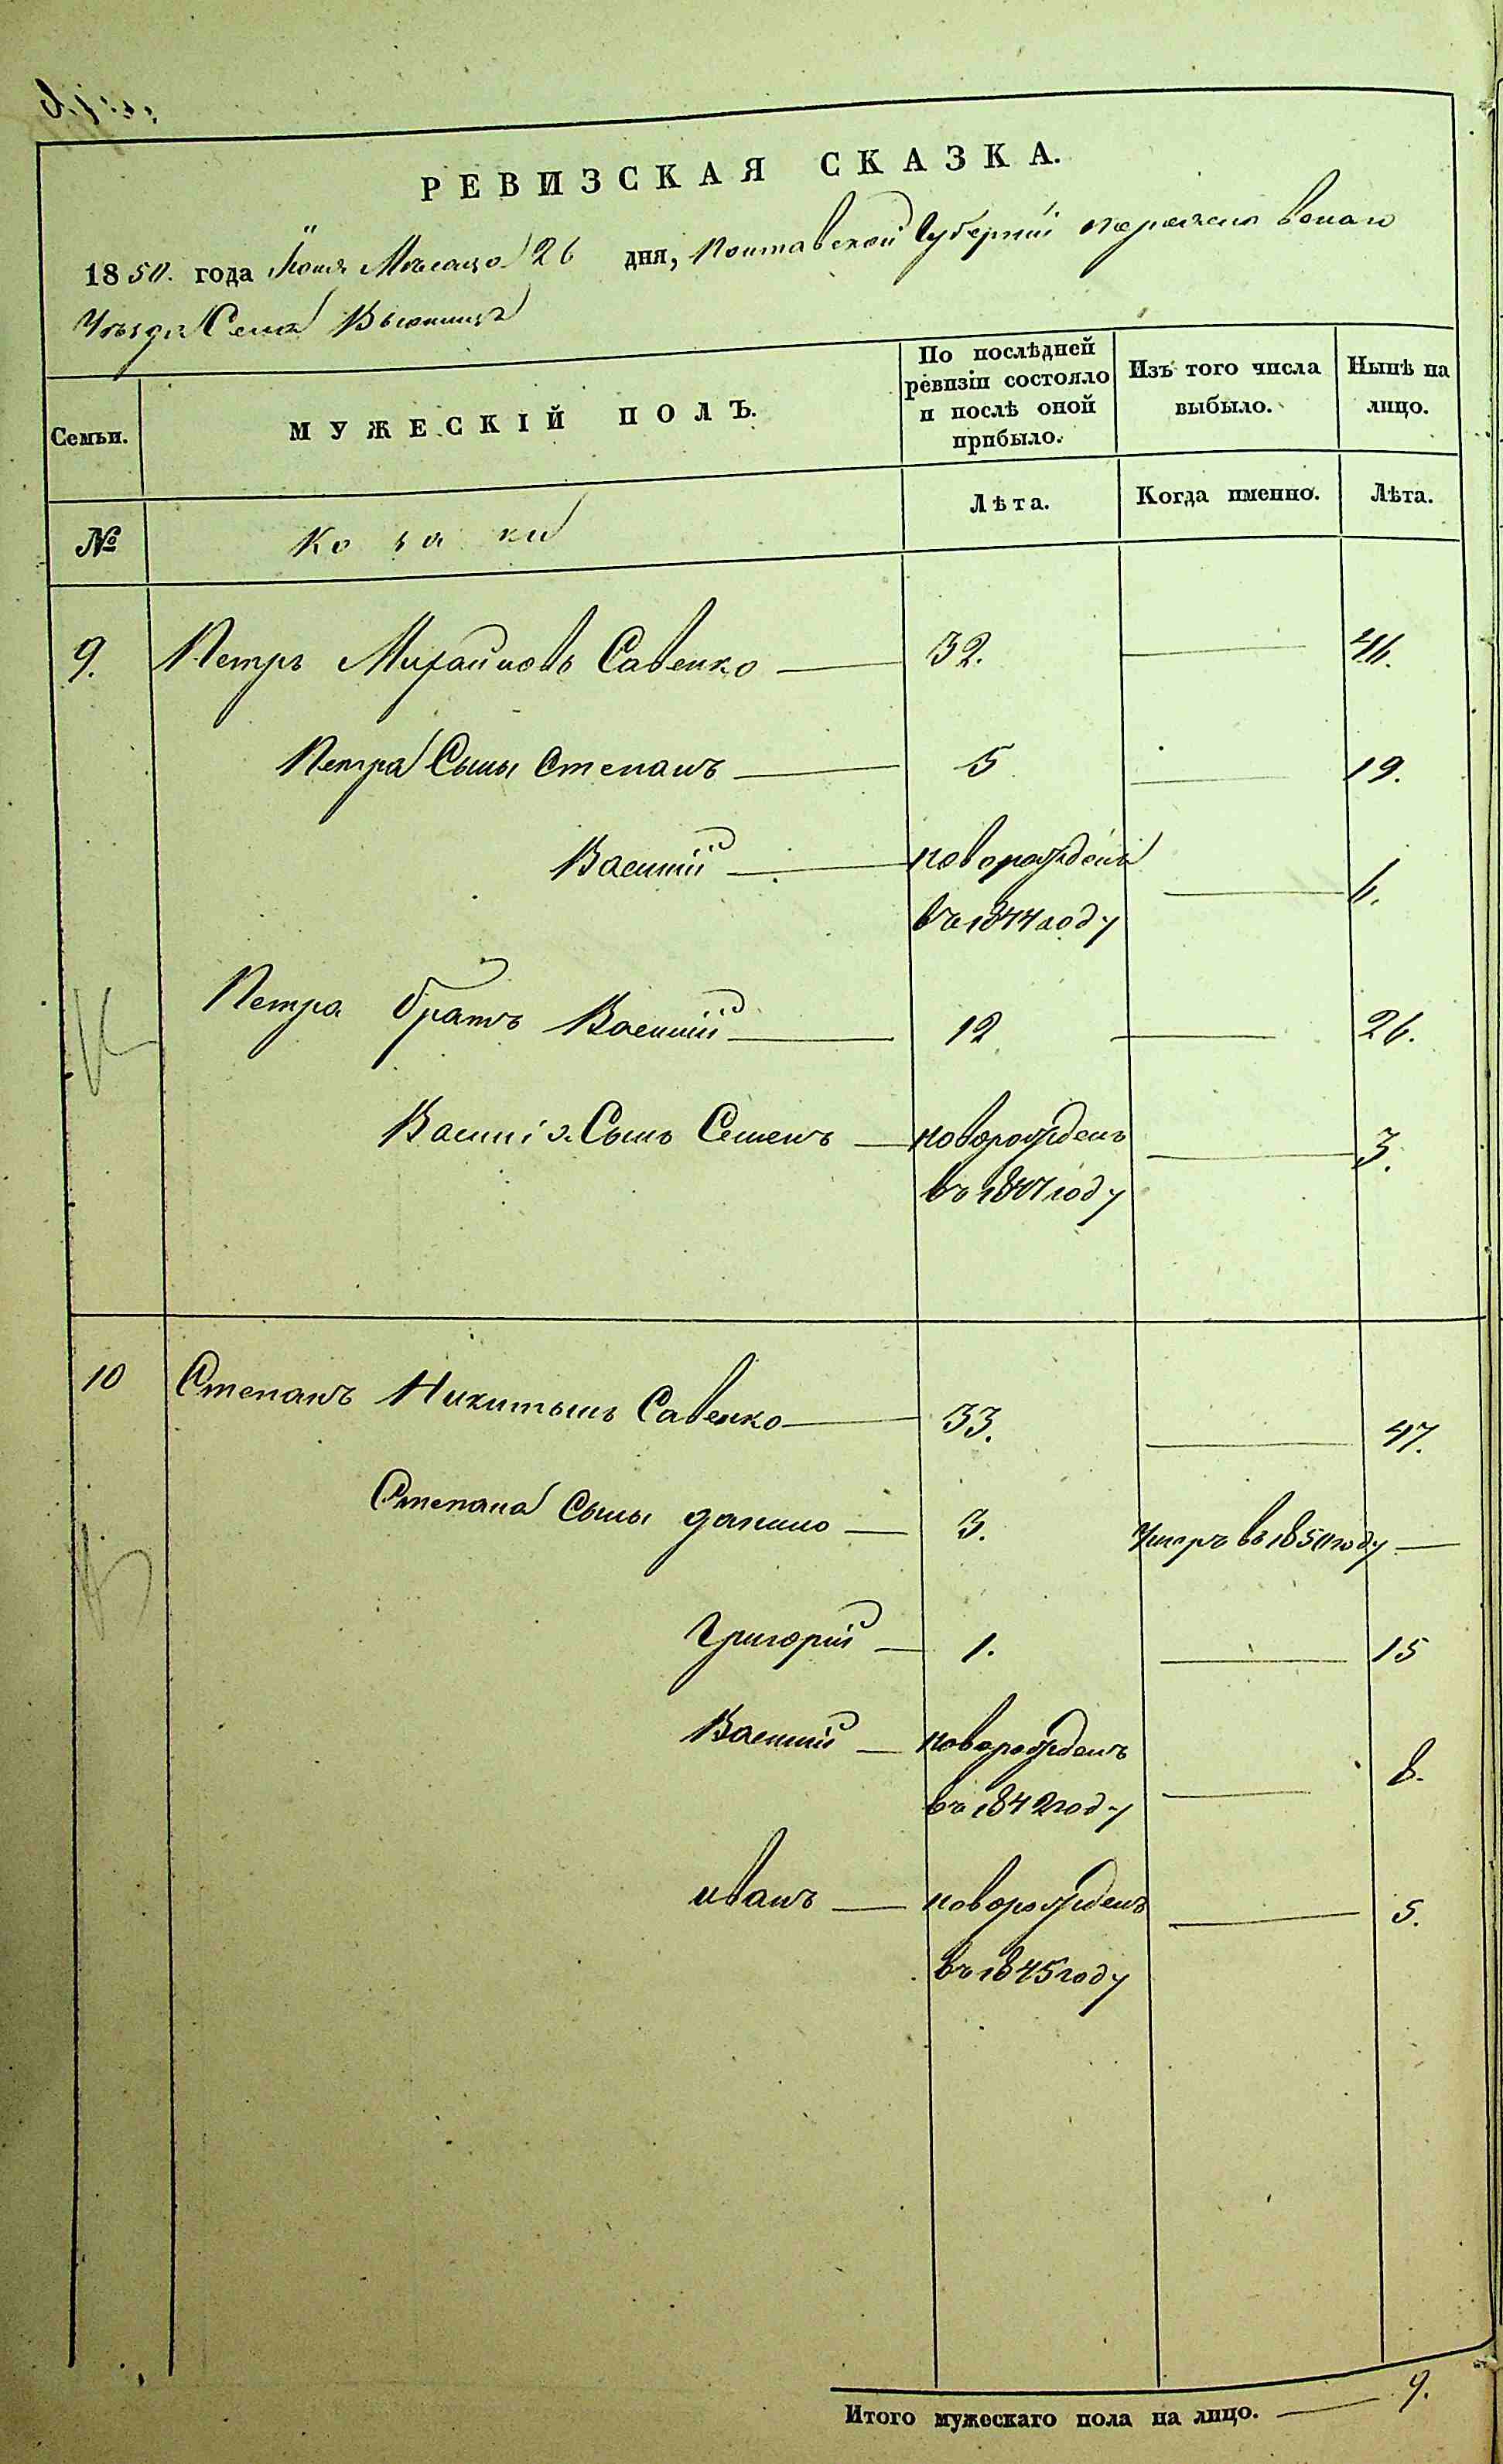 РЕВИЗСКАЯ СКАЗКА.
1850. года Іюня Мѣсяца 26 дня, Полтавской Губерніи Переяславскаго
Уѣзда Села Вьюнища
Семьи.
МУЖЕСКІЙ ПОЛЪ.
По послѣдней ревизіи состояло и послѣ оной прибыло.
Изъ того числа выбыло.
Нынѣ на лицо.
№
Козаки
Лѣта.
Когда именно.
Лѣта.
9. Петръ Михайловъ Савенко — 32. — 46.
Петра Сыны Степанъ — 5 — 19.
Василій — новорожденъ
въ 1844 году — 6.
Петра братъ Василій — 12 — 26.
Василія Сынъ Семенъ — новорожденъ
въ 1847 году — 3.
10 Степанъ Никитинъ Савенко — 33. — 47.
Степана Сыны данило — 3. Умеръ въ 1850 году —
Григорій — 1. — 15
Василій — новорожденъ
въ 1842 году — 8.
иванъ — новорожденъ
въ 1845 году — 5.
Итого мужескаго пола на лицо. — 9.